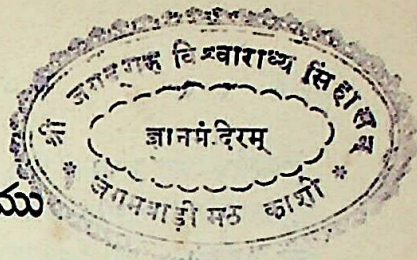 श्री जगद्गुरु विश्वाराध्य सिंहासन
ज्ञानमंदिरम्
* जंगमवाड़ी मठ काशी *
ము